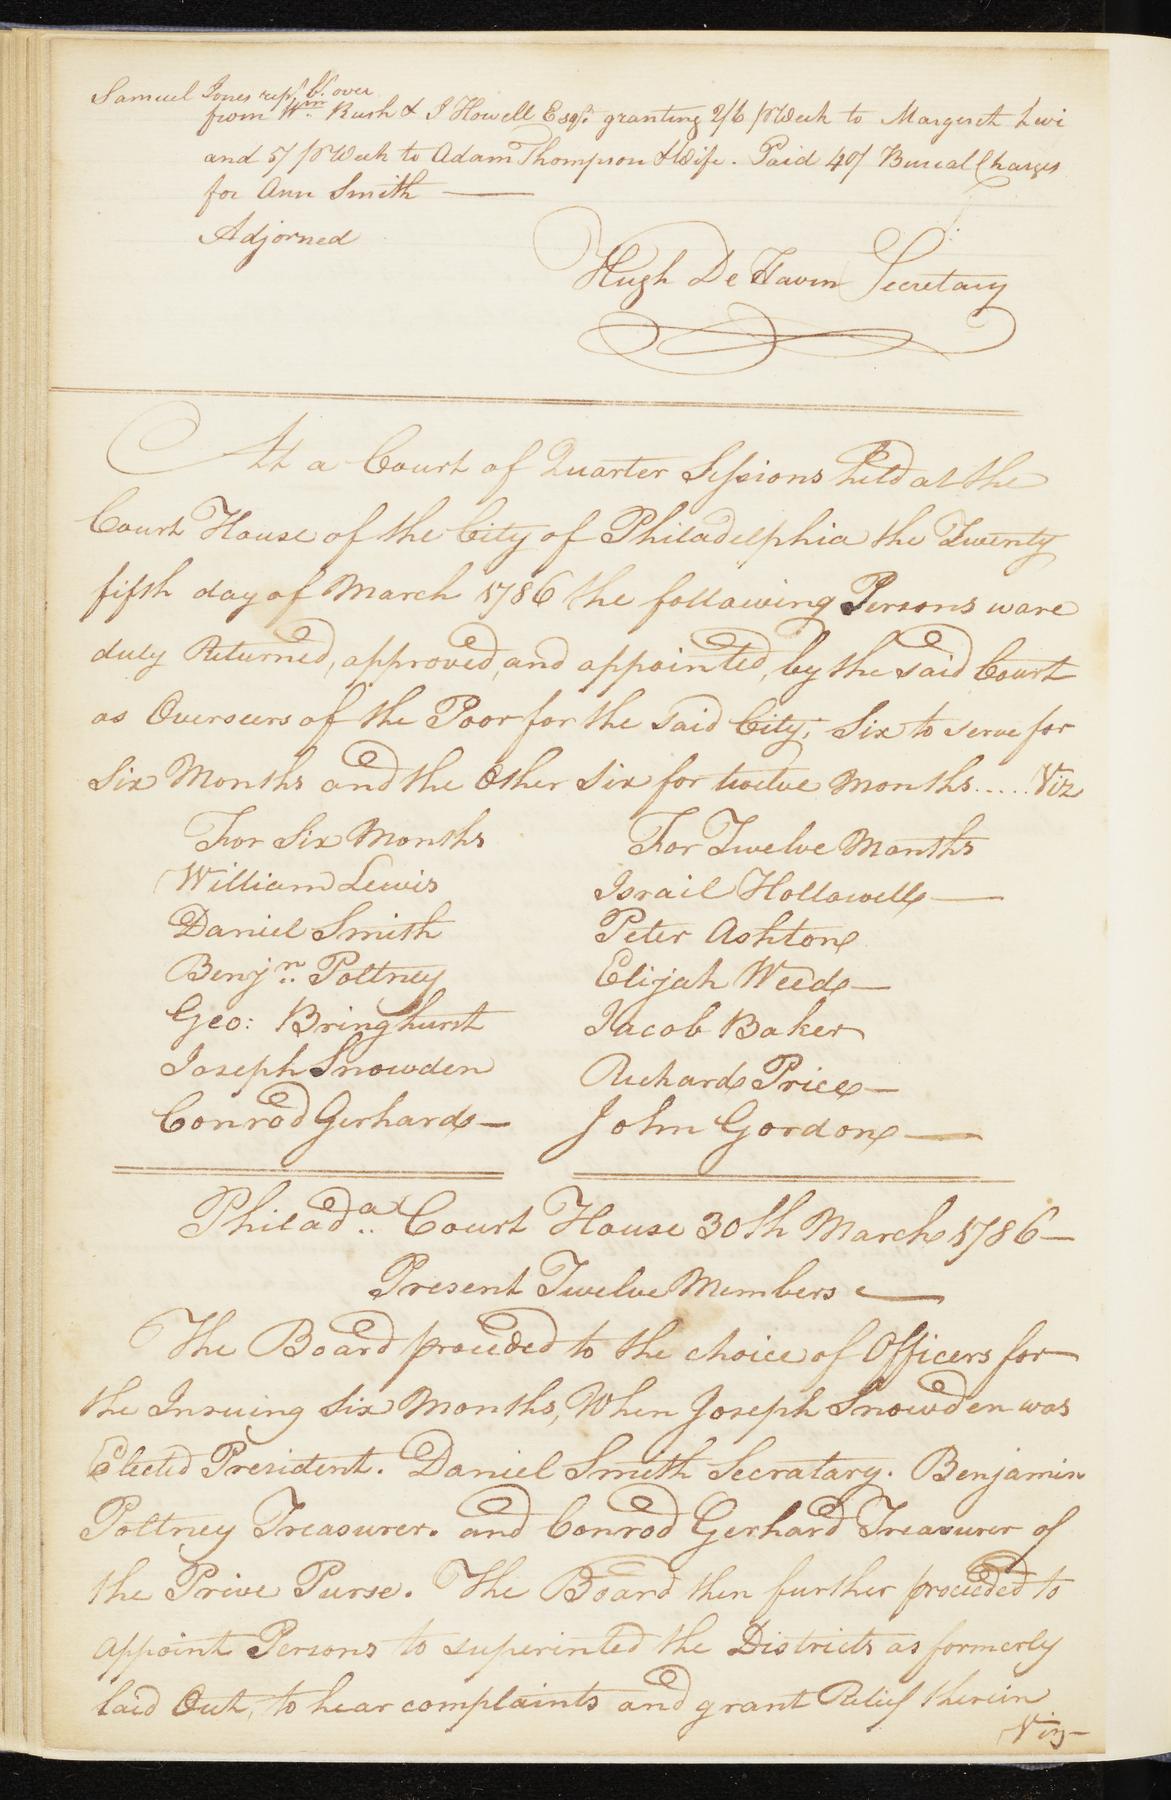 Samuel Jones rep.t b.t over
from W.m Rush & J Howell Esq.rs granting 2/6 p Week to Margeret Levi
and 5/ p Week to Adam Thompson & Wife. Paid 40/ Bureal Charges
for Ann Smith
Adjorned
Hugh De Haven Secretary
At a Court of Quarter Sessions held at the
Court House of the City of Philadelphia the Twenty
fifth day of March 1786 the following Persons ware
duly Returned, approved, and appointed, by the said Court
as Overseers of the Poor for the said City; Six to serve for
Six Months and the Other Six for twelve Months..... Viz
For Six Months
William Lewis
Daniel Smith
Benj.n Poltney
Geo: Bringhurst
Joseph Snowden
Conrod Gerhard —
For Twelve Months
Israil Hollowell —
Peter Ashton
Elijah Weed —
Jacob Baker
Richard Price —
John Gordon —
Philad.a Court House 30th March 1786 —
Present Twelve Members —
The Board proceeded to the choice of Officers for
the Insuing Six Months, When Joseph Snowden was
Elected President. Daniel Smith Secratary. Benjamin
Poltney Treasurer. and Conrod Gerhard Treasurer of
the Prive Purse. The Board then further proceeded to
appoint Persons to superinted the Districts as formerly
laid Out, to hear complaints and grant Relief therein
Viz —